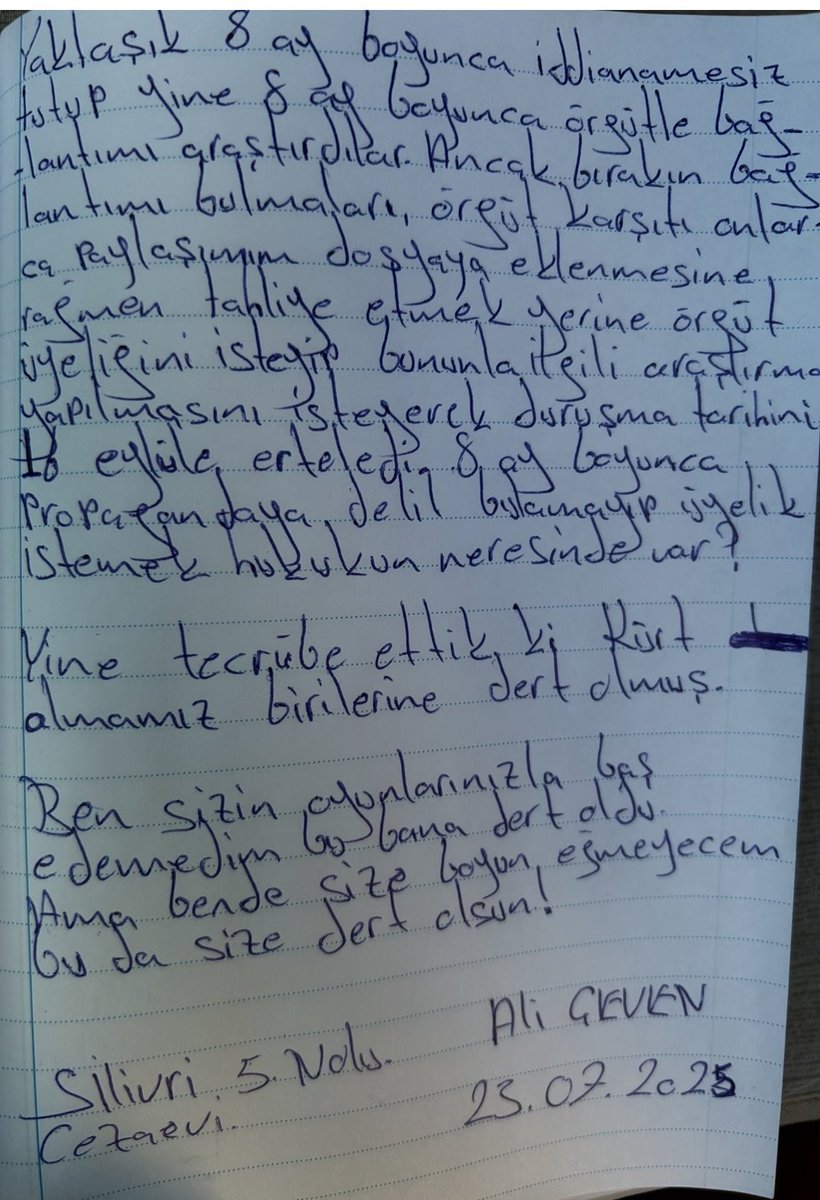 Yaklaşık 8 ay boyunca iddianamesiz
tutup yine 8 ay boyunca örgütle bağ-
-lantımı araştırdılar. Ancak bırakın bağ-
lantımı bulmaları, örgüt karşıtı onlar-
ca paylaşımım dosyaya eklenmesine
rağmen tahliye etmek yerine örgüt
üyeliğini isteyip bununla ilgili araştırma
yapılmasını isteyerek duruşma tarihini
eylüle erteledi. 8 ay boyunca
Propagandaya delil bulamayıp üyelik
istemek hukukun neresinde var?
Yine tecrübe ettik ki Kürt
olmamız birilerine dert olmuş.
Ben sizin oyunlarınızla baş
edemedim bu bana dert oldu.
Ama bende size boyun eğmeyecem
bu da size dert olsun!
Ali GEVEN
Silivri 5. Nolu.
23.07.2025
Cezaevi.